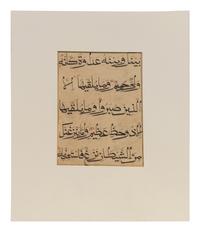 بينك وبينه عداوة كانه
ولى حميم وما يلقيها الا
الذين صبروا وما يلقيها
الا ذو حظ عظيم واما ينزغنك
من الشيطان نزغ فاستعذ